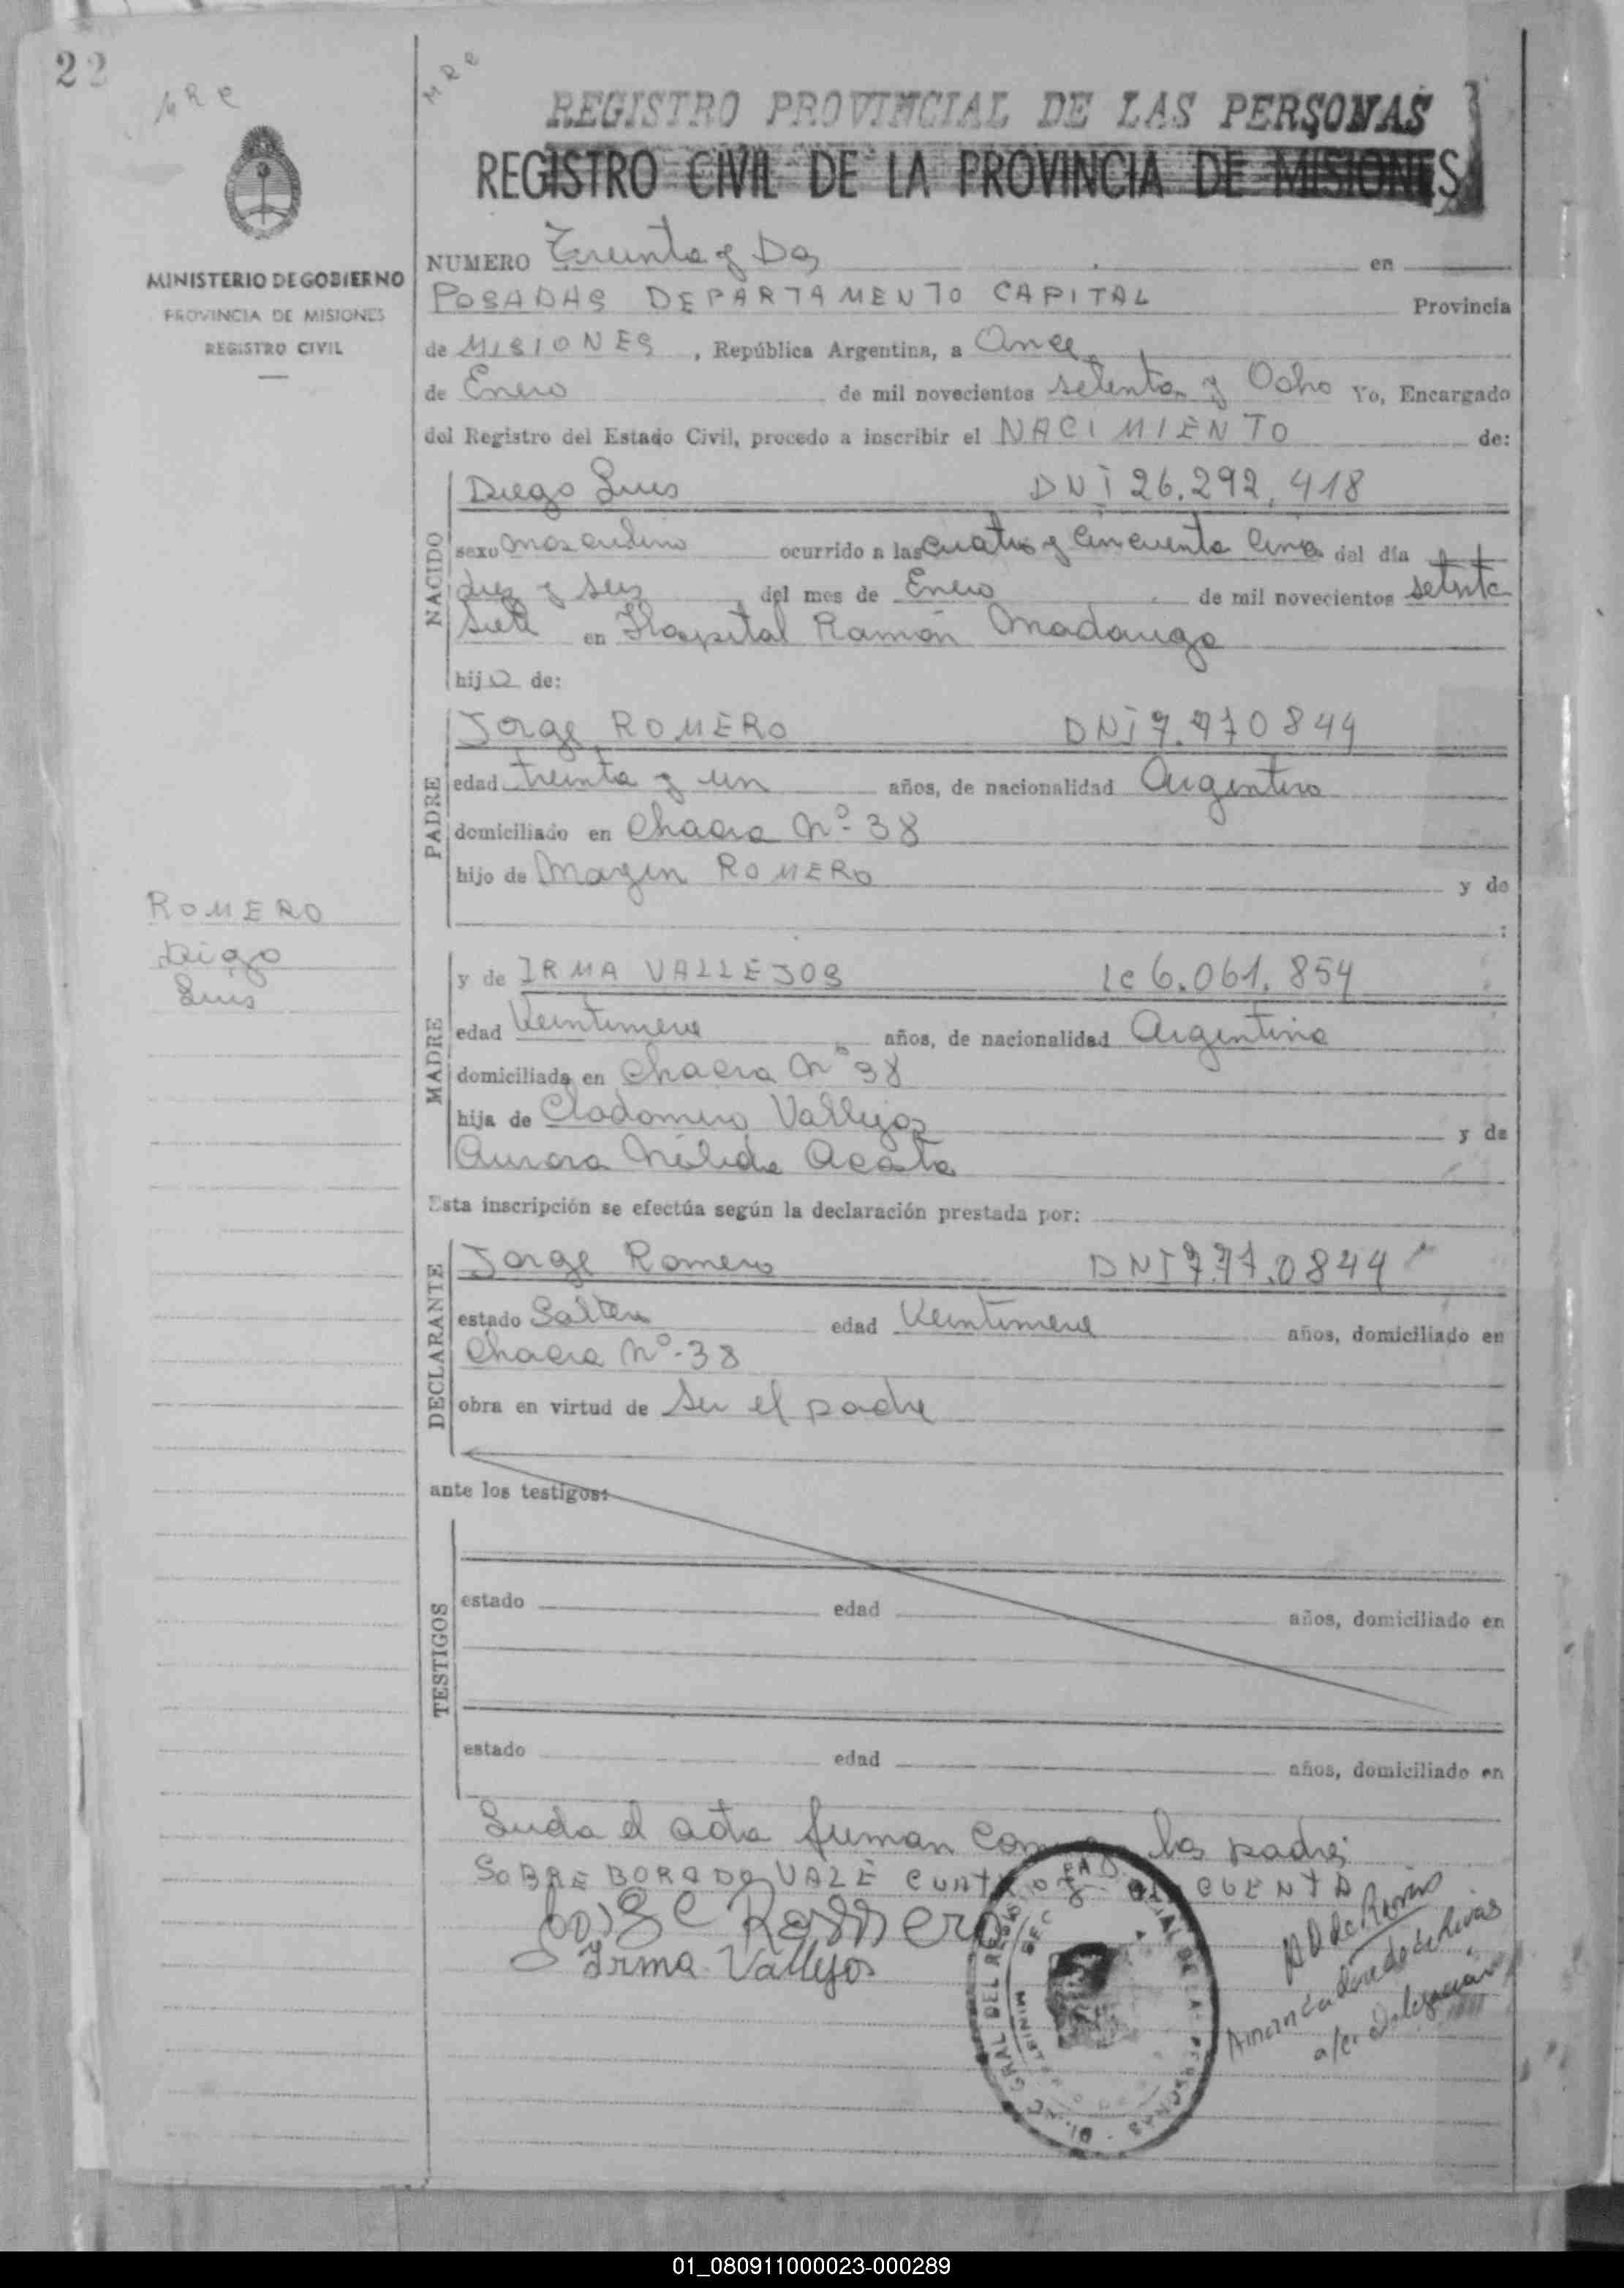 22
MRC
MRC
REGISTRO PROVINCIAL DE LAS PERSONAS
REGISTRO CIVIL DE LA PROVINCIA DE MISIONES
MINISTERIO DE GOBIERNO
PROVINCIA DE MISIONES
REGISTRO CIVIL
NUMERO Treinta y Dos en
POSADAS DEPARTAMENTO CAPITAL Provincia
de MISIONES, República Argentina, a Once
de Enero de mil novecientos setenta y Ocho Yo, Encargado
del Registro del Estado Civil, procedo a inscribir el NACIMIENTO de:
NACIDO
Diego Luis DNI 26.292.418
sexo masculino ocurrido a las cuatro y cincuenta cinco del día
diez y seis del mes de Enero de mil novecientos setenta
siete en Hospital Ramón Madariaga
hijo de:
PADRE
Jorge ROMERO DNI 7.710844
edad treinta y un años, de nacionalidad Argentino
domiciliado en Chacra Nº- 38
hijo de Margen ROMERO y de
:
ROMERO
Diego
Luis
MADRE
y de IRMA VALLEJOS LC 6.061.854
edad Veintinueve años, de nacionalidad Argentina
domiciliada en Chacra Nº 38
hija de Clodomiro Vallejos y de
Aurora Nélida Acosta
Esta inscripción se efectúa según la declaración prestada por:
DECLARANTE
Jorge Romero DNI 7.71.0844
estado Soltero edad Veintinueve años, domiciliado en
Chacra Nº-38
obra en virtud de ser el padre
ante los testigos:
TESTIGOS
estado edad años, domiciliado en
estado edad años, domiciliado en
Leida el acta firman los padres
SOBRE BORADO VALE CUATRO CINCUENTA
Jorge Romero
Irma Vallejos
a/c Delegación
01_080911000023-000289